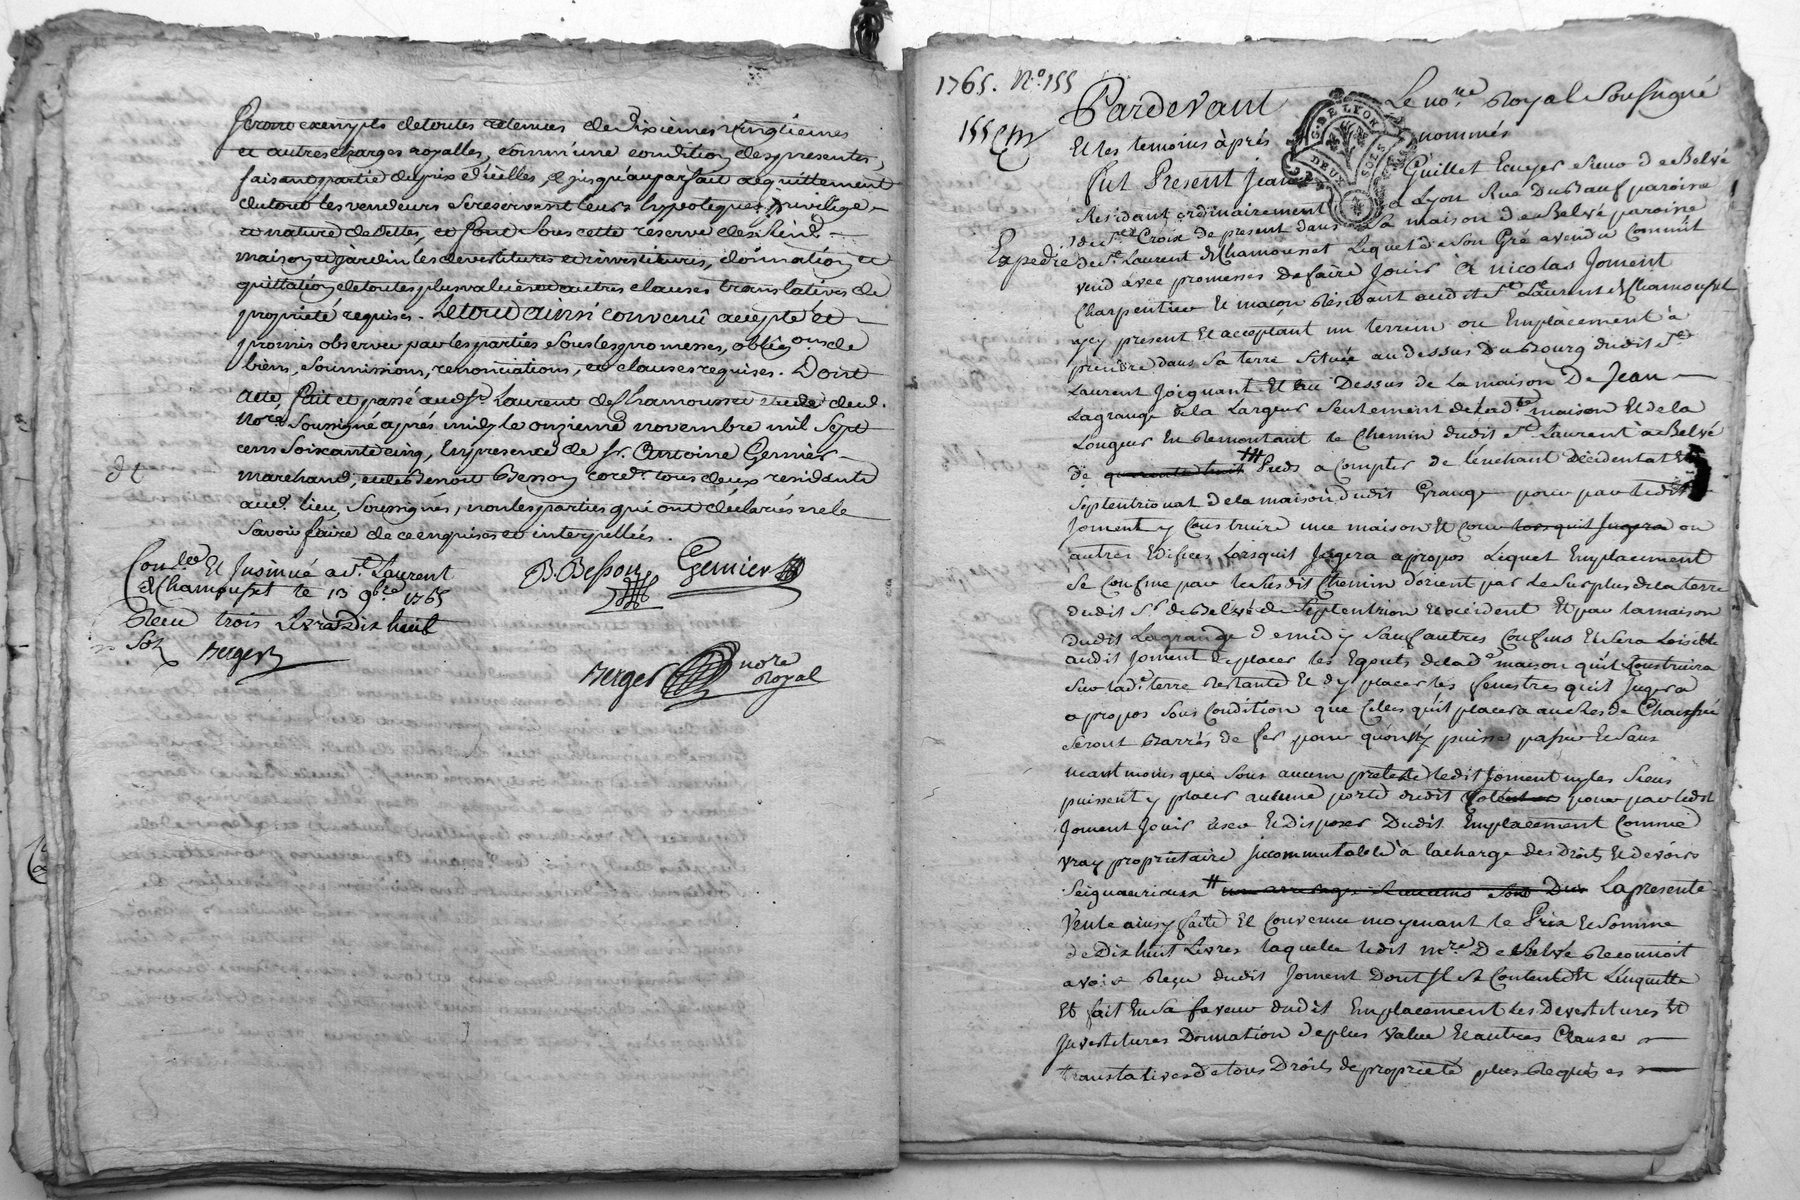 seront exempts de toutes retenues de dixièmes vingtiemes
et autres charges royalles, comm'une condition des presentes,
faisant partie du prix d'icelles, et jusqu'au parfait acquittement
du tout les vendeurs se reservent leurs hypoteques privilége
et nature de dettes, et sous cette réserve des
maison et jardin les devestitures et investitures, donnation et
quittation de toutes plus values et autres clauses translatives de
propriété requises. Le tout ainsi convenû accepté et
promis observer par les parties sous les promesses, obligõns de
biens, soumissions, renonciations, et clauses requises. Dont
acte, fait et passé aud. St. Laurent de Chamousset etude dud.
Nore. soussigné aprés midy le onzieme novembre mil sept
cens soixante cinq, En presence de sr. Antoine Gernier
marchand, et de Benoit Besson cordr. tous deux residants
aud. lieu, soussignés, non les parties qui ont déclarés ne le
savoir faire de ce enquises et interpellées.
B. Besson Gernier
Conlée Et Insinué a St. Laurent
de Chamousset le 13 9bre 1765
Reçu trois Livres dix huit
sols Berger
Berger nore Royal
1765. N.o 155
155
Pardevant Le nore. Royal Soussigné
Et les temoins après nommés
G. DE LYON
DEUX SOLS
fut Present Jean Guillet Ecuyer de Belvé
Residant ordinairement a Lyon Rue Du Bœuf paroisse
de Ste Croix de present dans sa maison de Belvé paroisse
Expedié
de St. Laurent de Chamousset Lequel de son Gré a vendu Comm'il
vend avec promesses de faire Jouir à nicolas Joment
Charpentier Et maçon Résidant audit St. Laurent de Chamousset
icy present Et acceptant un terrein ou Emplacement à
prendre dans sa terre située au dessus Du Bourg dudit St.
Laurent Joignant Et au Dessus de La maison De Jean
Lagrange de la Largeur seulement de lad.te maison Et de la
Longeur En Remontant le Chemin dudit St. Laurent à Belvé
de quarante huit # Pieds a compter de
Septentrional de la maison dudit Grange pour par ledit
Joment y Construire une maison Et Cour lorsquil Jugera ou
autres Edifices Lorsquil Jugera a propos Lequel Emplacement
se Confine par le susdit Chemin d'orient par le surplus de la terre
dudit Sr. de Belvé de septentrion et occident Et par la maison
dudit Lagrange de midy sauf autres Confins Et sera Loisible
audit Joment de placer les Egouts de lad.e maison qu'il Construira
sur lad.e terre restante Et d'y placer les fenestres qu'il Jugera
a propos sous Condition que Celles qu'il placera au Rés de Chaussée
seront Barrés de fer pour qu'on n'y puisse passer Et sans
neant moins que sous aucun preteste ledit Joment ny les siens
puissent y placer aucune porte dudit pour par ledit
Joment Jouir user Et Disposer Dudit Emplacement Comme
vray proprietaire Jncommutable à la charge des Droits Et devoirs
Seigneuriaux # La presente
Vente ainsy faite Et Convenue moyenant le Prix Et Somme
de Dix huit Livres laquelle ledit mre. De Belvé Reconnoit
avoir Reçu dudit Joment Dont Jl Est Content Et L'enquitte
Et fait En sa faveur dudit Emplacement Les Devestitures Et
Jnvestitures Donnation de plus value Et autres Clauses
translatives de tous Droits de proprieté plus Requises